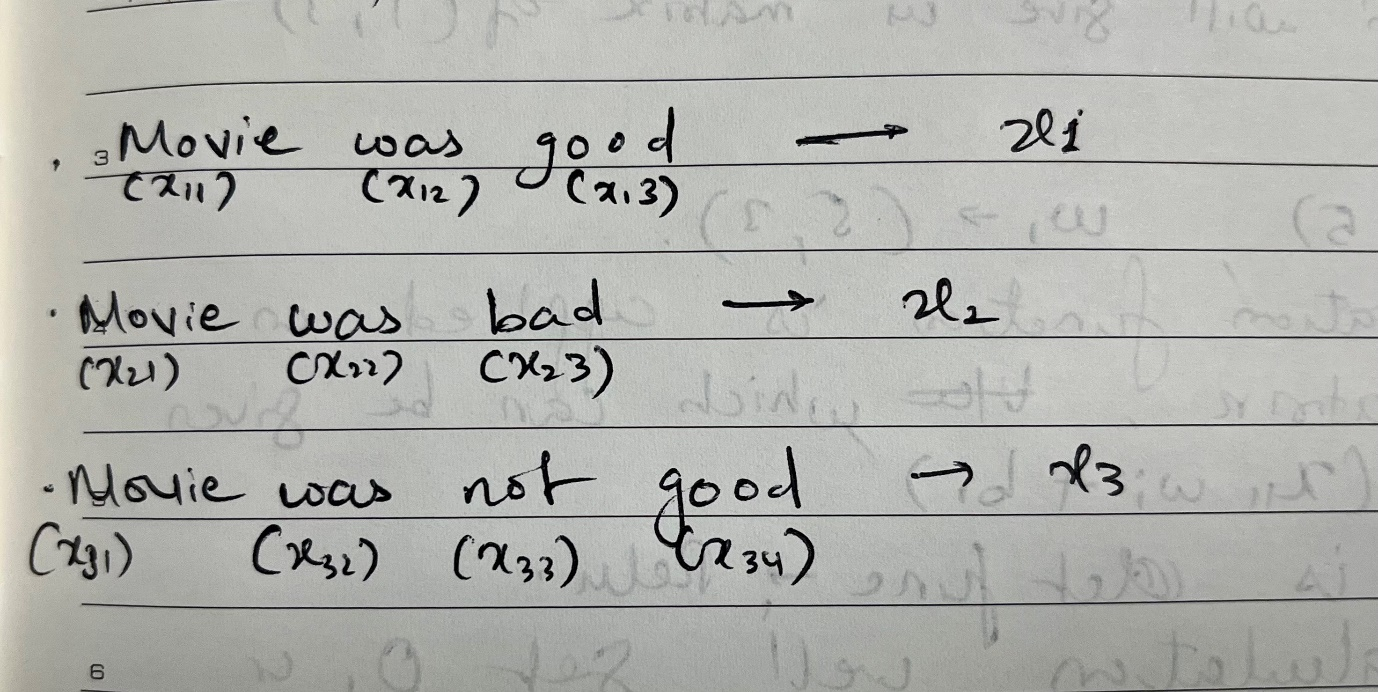 3 Movie was good → x1
(x11) (x12) (x13)
· Movie was bad → x2
(x21) (x22) (x23)
· Movie was not good → x3
(x31) (x32) (x33) (x34)
6